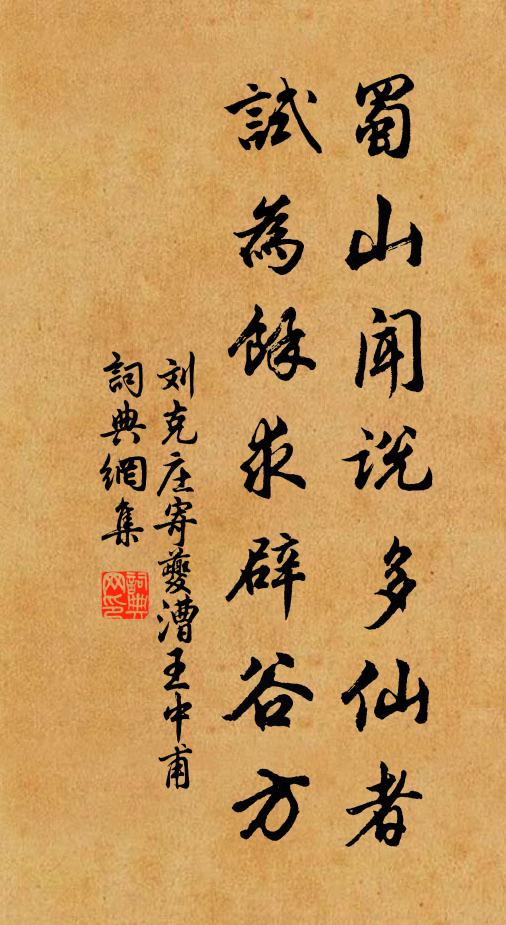 蜀山闻说多仙者
試為餘求辟谷方
刘克庄寄夔漕王中甫
詞典網集
詞典
网印